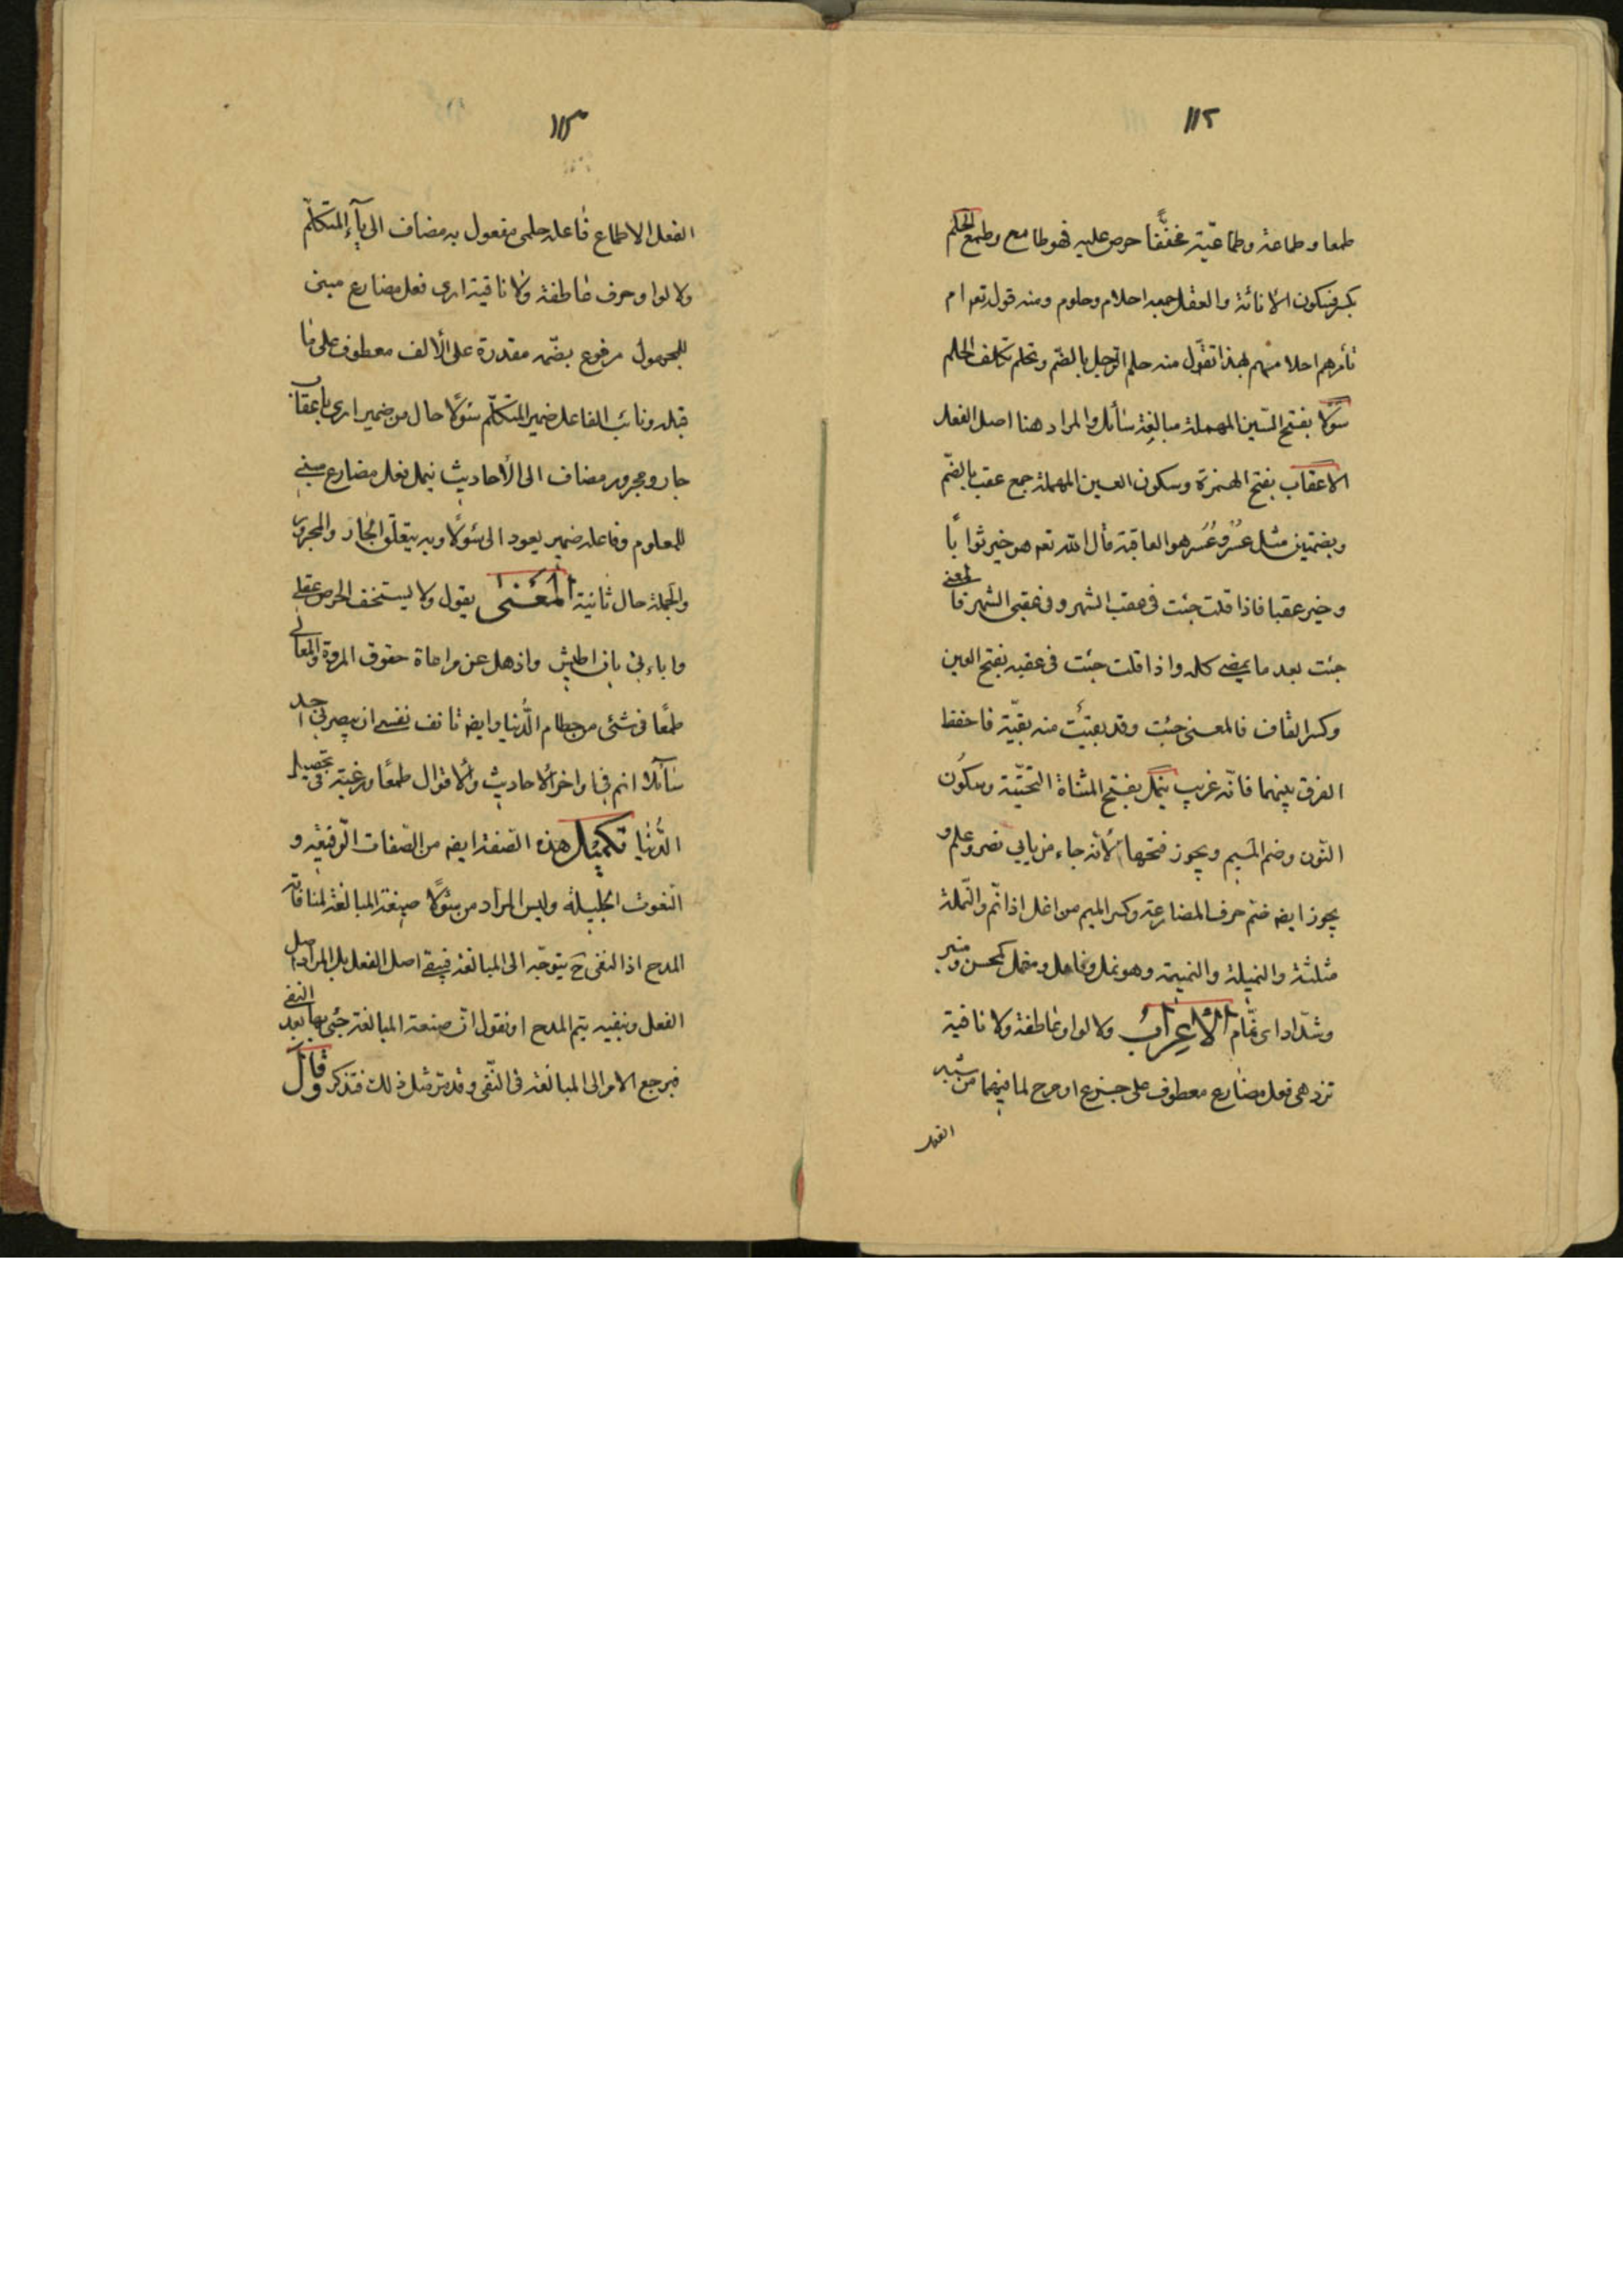 ١١٢
طمعا وطماعة وطماعيّة مخفّفا حرص عليه فهو طامع وطمع الحلم
بكسر فسكون الأناءة والعقل جمعه احلام وحلوم ومنه قوله تعم ام
تأمرهم احلامهم بهذا تقول منه حلم الرجل بالضّم وتحلم تكلف الحلم
سَؤلا بفتح السّين المهملة مبالغة سأل والمراد هنا اصل الفعل
الاعقاب بفتح الهمزة وسكون العين المهملة جمع عقب بالضّم
وبضمتين مثل عُسْر وعُسُر هو العاقبة قال الله تعم هو خير ثواباً
وخير عقبا فاذا قلت جئت فى عقب الشهر وفى عقبى الشهر فالمعنى
جئت بعد ما يمضى كله واذا قلت جئت فى عقبه بفتح العين
وكسر القاف فالمعنى جئت وقد بقيَت منه بقيّة فاحفظ
الفرق بينهما فانّه غريب ينمل بفتح المثناة التحتيّة وسكون
النّون وضم الميم ويجوز فتحها لأنه جاء من بابي نصر وعلم و
يجوز ايضه ضم حرف المضارعة وكسر الميم من انمل اذا نمّ والنّملة
مثلثة والنميلة والنميمة وهو نمل ونامل ومنمل كمحسن ومنبر
وشدّاد اى نمّام الأعراب ولا لواو عاطفة ولا نافية
تزدهى فعل مضارع معطوف على جزع او مرح لما فيهما من شبه
الفعل
١١٣
الفعل الاطماع فاعله حلمى مفعول به مضاف الى يآء المتكلّم
ولا لواو حرف عاطفة ولا نافية ارى فعل مضارع مبنى
للمجهول مرفوع بضّمه مقدرة على الألف معطوف على ما
قبله ونائب الفاعل ضمير المتكلّم سئولًا حال من ضمير ارى باعقاب
جار ومجرور مضاف الى الأحاديث ينمل فعل مضارع مبنى
للمعلوم وفاعله ضمير يعود الى سئولًا وبه يتعلّق الجار والمجرور
والجملة حال ثانية المَعْنىٰ يقول ولا يستخف الحرص عقلى
واباءنى بان اطيش واذهل عن مراعاة حقوق المروة والمعالى
طمعًا فى شئى من حطام الدُّنيا وايضه تانف نفسى ان يبصرنى احد
سآئلا انم فى اواخر الأحاديث والأقوال طمعًا ورغبة فى تحصيل
الدُّنيا تكميل هذه الصّفة ايضه من الصّفات الرّفيعة و
النّعوت الجليلة وليس المراد من سئولًا صيغة المبالغة لمنافاته
المدح اذ النفى ح يتوجّه الى المبالغة فيبقى اصل الفعل بل المراد اصل
الفعل وبنفيه يتم المدح او نقول انّ صيغة المبالغة جئى بها بعد النفى
فيرجع الامر الى المبالغة فى النّفى وقد مر مثل ذلك فتذكر وقال